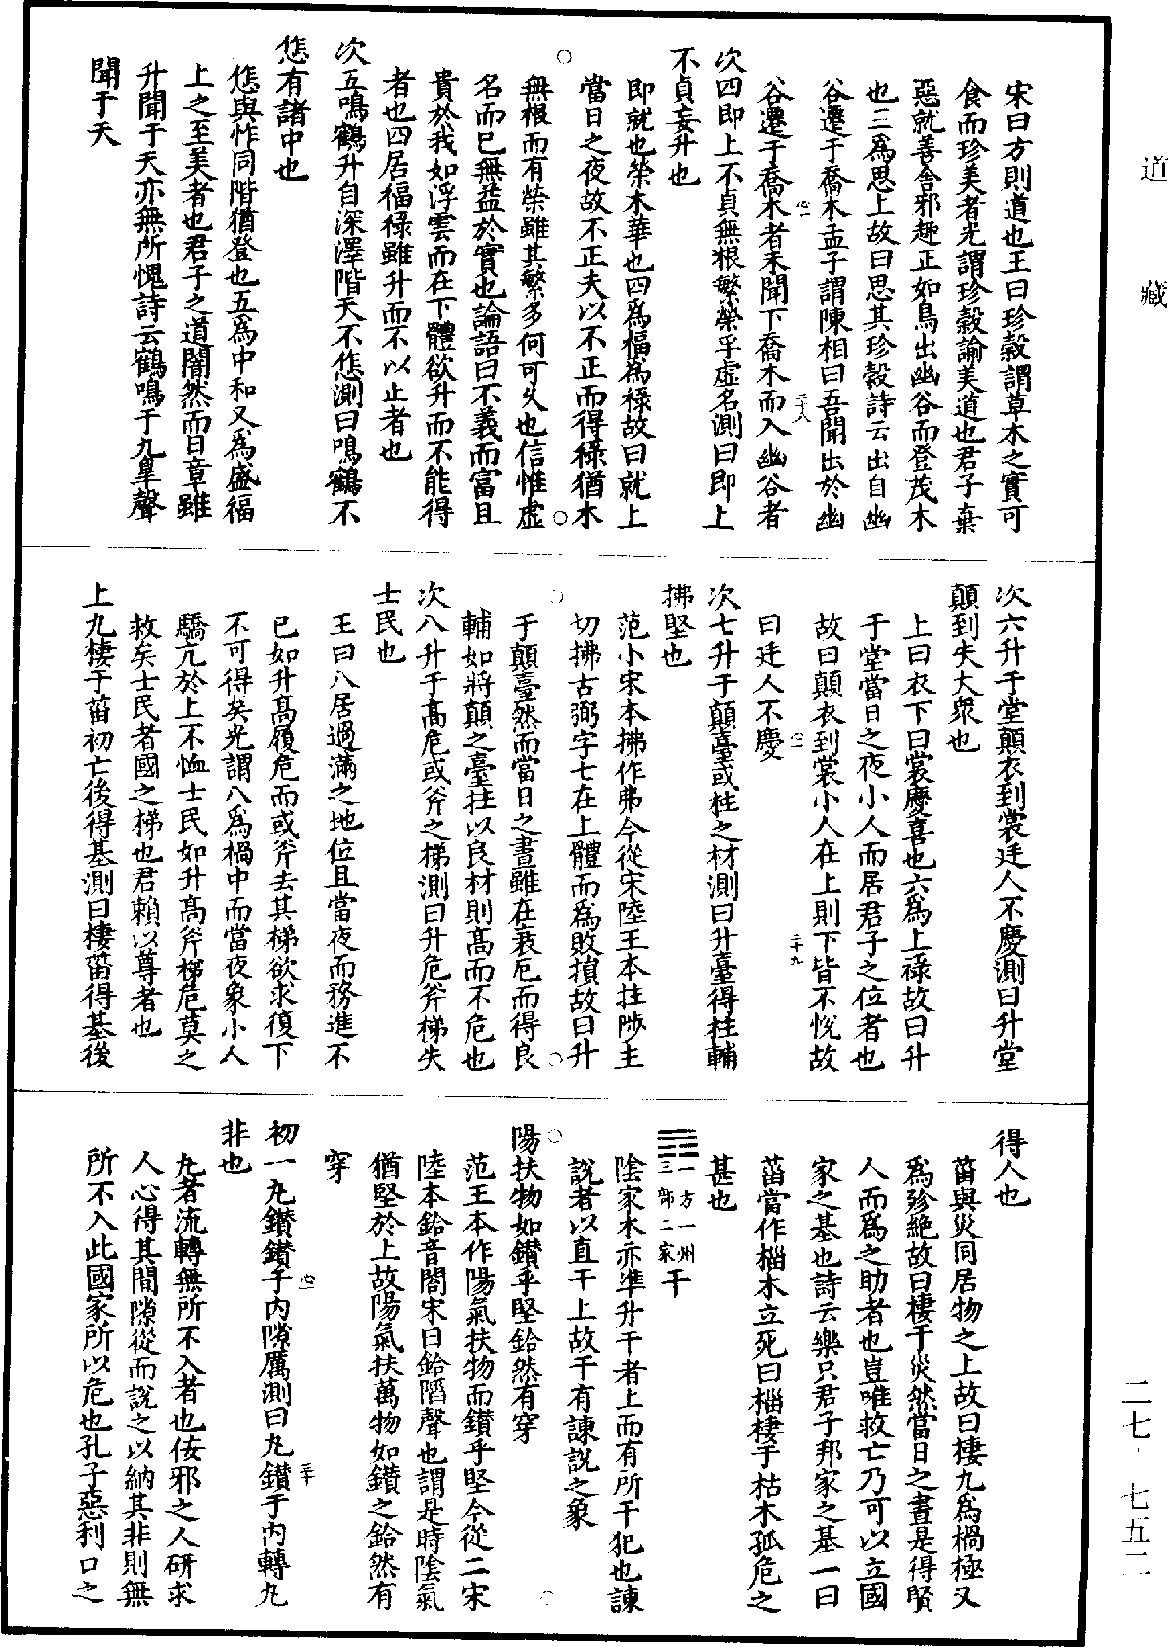 道藏
宋曰方則道也王曰珍穀謂草木之實可
食而珍美者光謂珍穀諭美道也君子棄
惡就善舍邪趣正如鳥出幽谷而登茂木
也二爲思上故曰思其珍穀詩云出自幽
谷遷于喬木孟子謂陳相曰吾聞出於幽
谷遷于喬木者未聞下喬木而入幽谷者
心一
二十八
次四即上不貞無根繁榮孚虛名測曰即上
不貞妄升也
即就也榮木華也四爲福爲祿故曰就上
當日之夜故不正夫以不正而得祿猶木
無根而有榮雖其繁多何可久也信惟虛
名而已無益於實也論語曰不義而富且
貴於我如浮雲而在下體欲升而不能得
者也四居福祿雖升而不以止者也
次五鳴鶴升自深澤階天不㤰測曰鳴鶴不
㤰有諸中也
㤰與怍同階猶登也五爲中和又爲盛福
上之至美者也君子之道闇然而日章雖
升聞于天亦無所愧詩云鶴鳴于九臯聲
聞于天
次六升于堂顛衣到裳廷人不慶測曰升堂
顛到失大衆也
上曰衣下曰裳慶喜也六爲上祿故曰升
于堂當日之夜小人而居君子之位者也
故曰顛衣到裳小人在上則下皆不悅故
曰廷人不慶
心一
二十九
次七升于顛臺或拄之材測曰升臺得拄輔
拂堅也
范小宋本拂作弗今從宋陸王本拄陟主
切拂古弼字七在上體而爲敗損故曰升
于顛臺然而當日之晝雖在衰厄而得良
輔如將顛之臺拄以良材則高而不危也
次八升于高危或斧之梯測曰升危斧梯失
士民也
王曰八居過滿之地位且當夜而務進不
已如升高履危而或斧去其梯欲求復下
不可得矣光謂八爲禍中而當夜象小人
驕亢於上不恤士民如升高斧梯危莫之
救矣士民者國之梯也君賴以尊者也
上九棲于菑初亡後得基測曰棲菑得基後
得人也
菑與災同居物之上故曰棲九爲禍極又
爲殄絶故曰棲于災然當日之晝是得賢
人而爲之助者也豈唯救亡乃可以立國
家之基也詩云樂只君子邦家之基一曰
菑當作椔木立死曰椔棲于枯木孤危之
甚也
一方一州
三部二家
干
陰家木亦準升干者上而有所干犯也諫
說者以直干上故干有諫說之象
陽扶物如鑽乎堅鉿然有穿
范王本作陽氣扶物而鑽乎堅今從二宋
陸本鉿音閤宋曰鉿陷聲也謂是時陰氣
猶堅於上故陽氣扶萬物如鑽之鉿然有
穿
初一丸鑽鑽于內隙厲測曰丸鑽于內轉丸
非也
心一
三十
丸者流轉無所不入者也佞邪之人研求
人心得其間隙從而說之以納其非則無
所不入此國家所以危也孔子惡利口之
二七·七五二